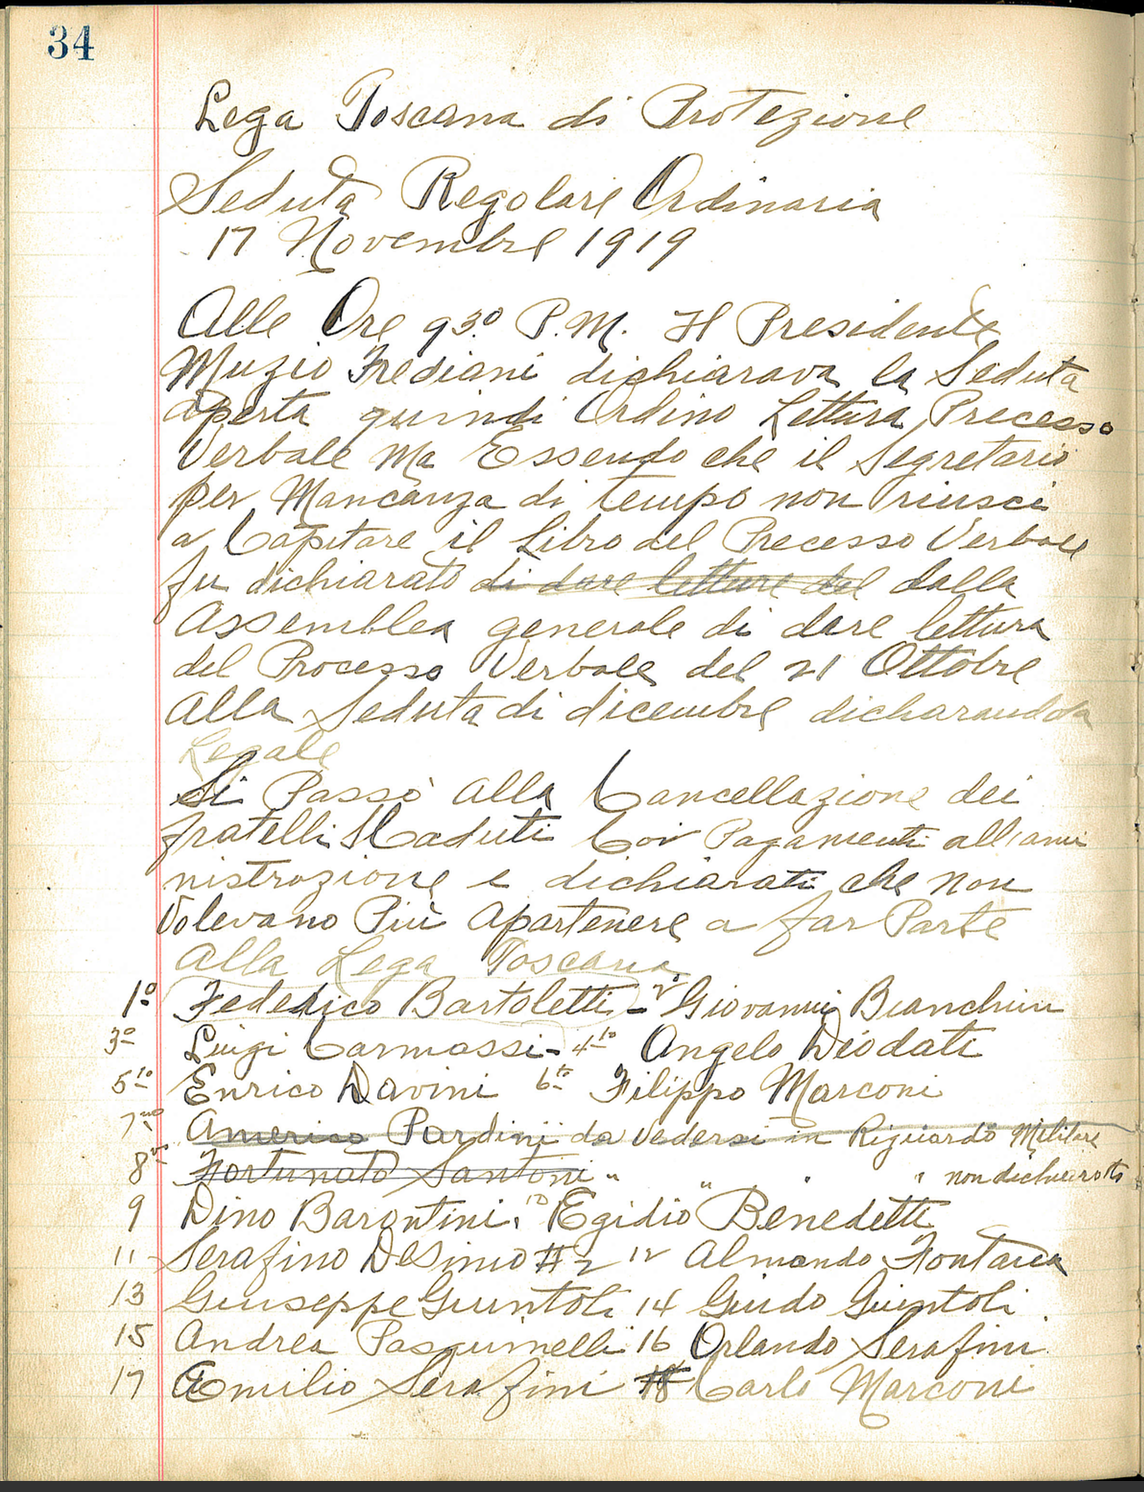 34
Lega Toscana di Protezione
Seduta Regolare Ordinaria
17 Novembre 1919
Alle Ore 930 P.M. Il Presidente
Muzio Frediani dichiarava la Seduta
aperta quindi Ordino Lettura Precesso
Verbale Ma Essendo che il Segretario
per Mancanza di tempo non riusci
a Capitare il Libro del Precesso Verbale
fu dichiarato di dare letture del dalla
Assemblea generale di dare lettura
del Processo Verbale del 21 Ottobre
alla Seduta di dicembre dicharandola
Legale
Si Passò alla Cancellazione dei
fratelli Scaduti Coi Pagamenti all'ami
nistrazione e dichiarati che non
Volevano Più apartenere a far Parte
alla Lega Toscana
1º Federico Bartoletti - 2º Giovanni Bianchini
3º Luigi Carmassi - 4to Angelo Deodati
5to Enrico Davini 6to Filippo Marconi
7mo Americo Pardini da Vedersi in Riguardo Militare
8vo Fortunato Santoni " " " non dichiarato
9 Dino Barontini. 10 Egidio Benedetti
11 Serafino DeSimo #2 12 Almando Fontana
13 Giuseppe Giuntoli 14 Guido Giuntoli
15 Andrea Pasquinelli 16 Orlando Serafini
17 Emilio Serafini 18 Carlo Marconi